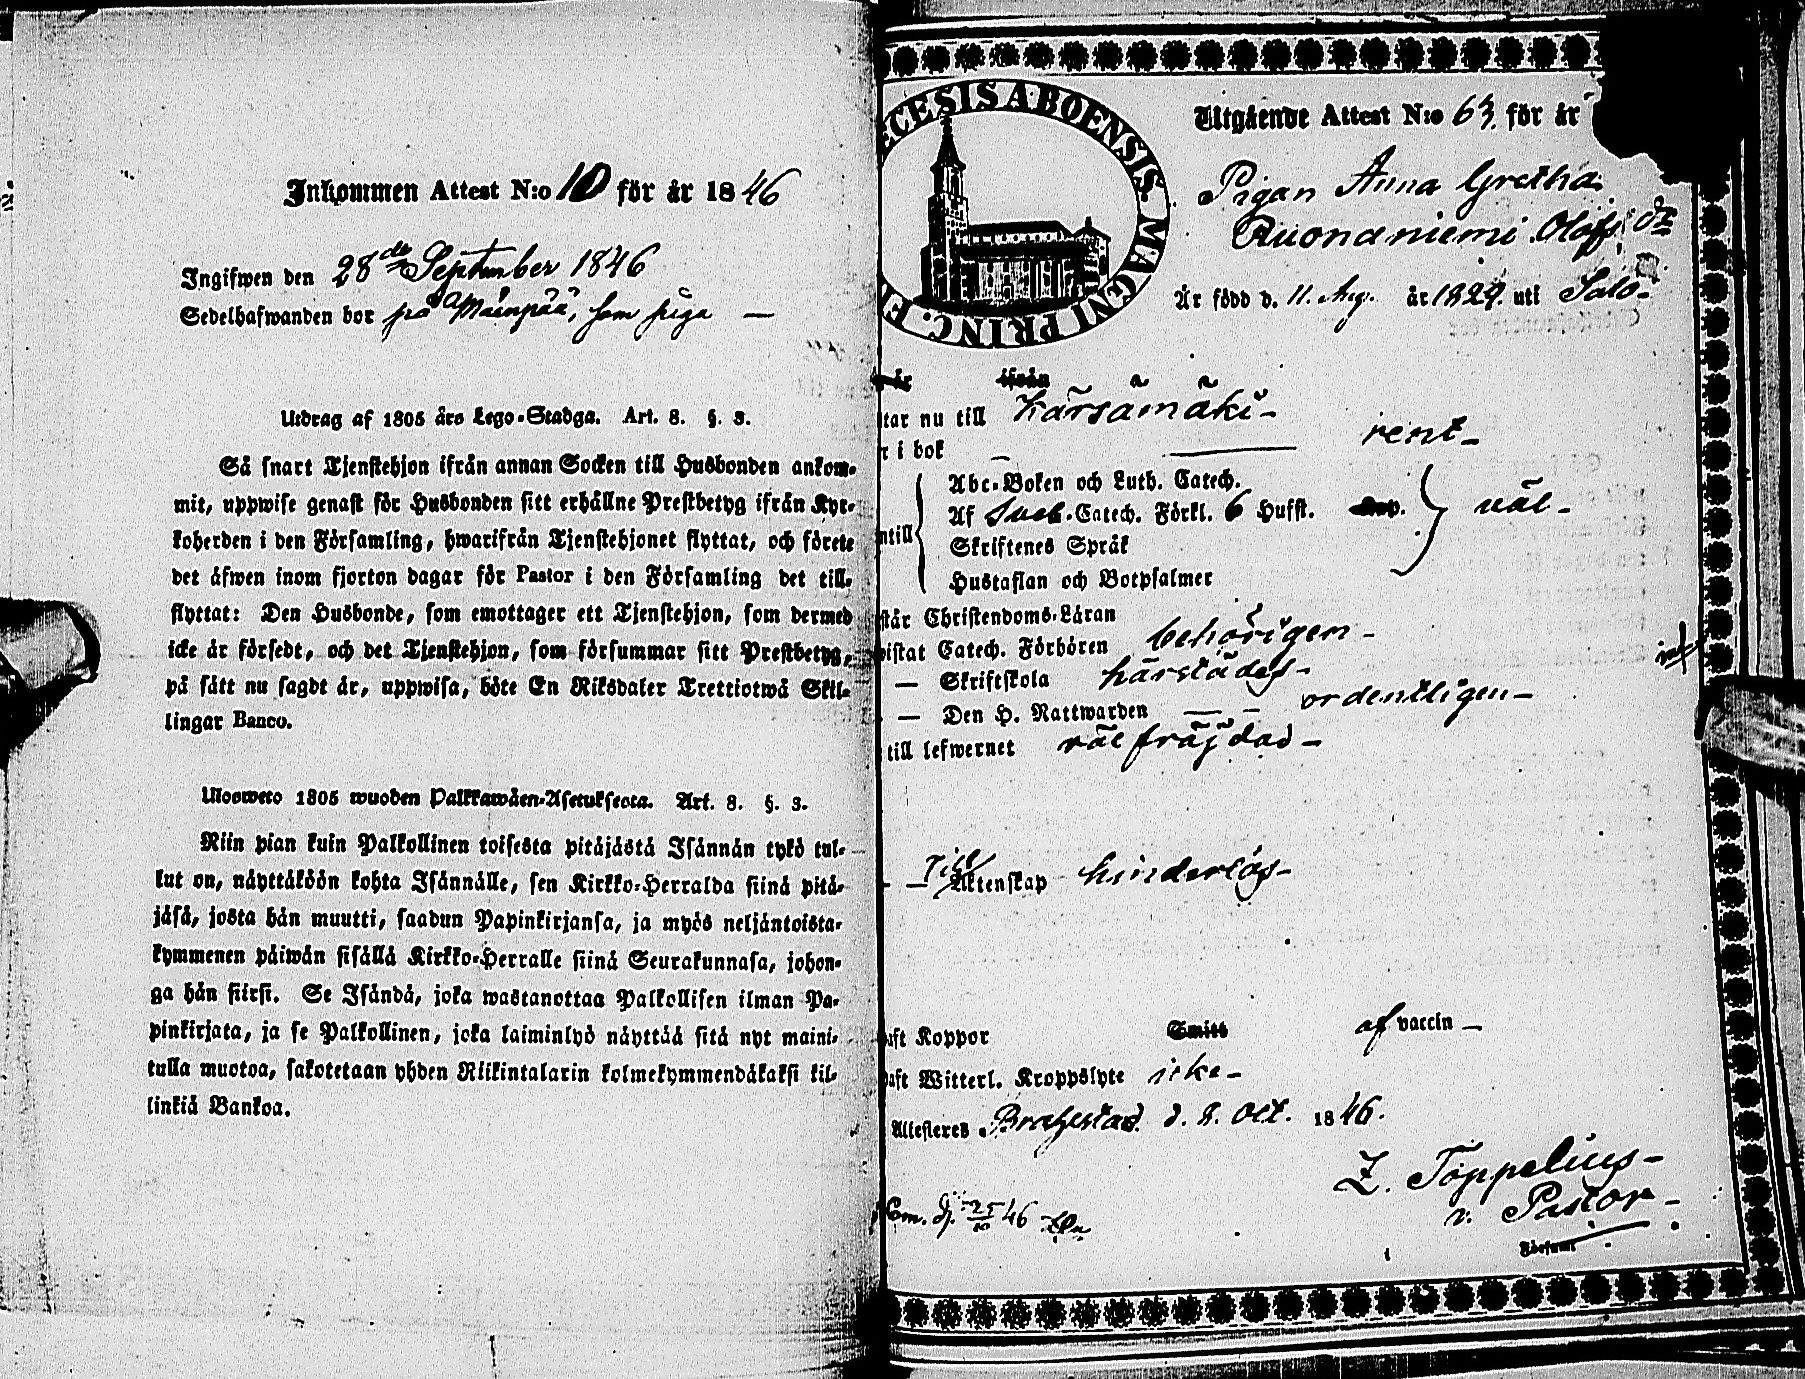 Inkommen Attest N:o 10 för år 1846
Ingifwen den 28de September 1846
Sedelhafwanden bor på Mäenpää, som piga —
Utdrag af 1805 års Lego-Stadga. Art. 8. §. 3.
Så snart Tjenstehjon ifrån annan Socken till Husbonden ankom-
mit, uppwise genast för Husbonden sitt erhållne Prestbetyg ifrån Kyr-
koherden i den Församling, hwarifrån Tjenstehjonet flyttat, och förete
det äfwen inom fjorton dagar för Pastor i den Församling det till-
flyttat: Den Husbonde, som emottager ett Tjenstehjon, som dermed
icke är försedt, och det Tjenstehjon, som försummar sitt Prestbetyg,
på sätt nu sagdt är, uppwisa, böte En Riksdaler Trettiotwå Skil-
lingar Banco.
Ulosweto 1805 wuoden Palkkawäen-Asetuksesta. Art. 8. §. 3.
Niin pian kuin Palkollinen toisesta pitäjästä Isännän tykö tul-
lut on, näyttäköön kohta Isännälle, sen Kirkko-Herralda siinä pitä-
jäsä, josta hän muutti, saadun Papinkirjansa, ja myös neljäntoista-
kymmenen päiwän sisällä Kirkko-Herralle siinä Seurakunnasa, johon-
ga hän siirsi. Se Isändä, joka wastanottaa Palkollisen ilman Pa-
pinkirjata, ja se Palkollinen, joka laiminlyö näyttää sitä nyt maini-
tulla muotoa, sakotetaan yhden Riikintalarin kolmekymmendäkaksi kil-
linkiä Bankoa.
ECESIS ABOENSIS. MAGNI PRINC. F
Utgående Attest N:o 63. för år
Pigan Anna Gretha
Ruonaniemi Olofs dr
Är född d. 11. Aug. år 1829. uti Salo-
är ifrån
tar nu till Kärsämäki-
r i bok — rent-
Abc-Boken och Luth. Catech.
Af Sveb.-Catech. Förkl. 6 Hufst. väl-
ntill
Skriftenes Språk
Hustaflan och Botpsalmer
står Christendoms-Läran
vistat Catech. Förhören behörigen-
— Skriftskola härstädes-
— Den H. Nattwarden — — ordentligen-
till lefwernet väl fräjdad-
— Till Äktenskap hinderlös-
aft Koppor Smitt af vaccin —
aft Witterl. Kroppslyte icke-
Attesteres Brahestad d. 2. Oct. 1846.
Z. Toppelius-
v. Pastor-
Församl